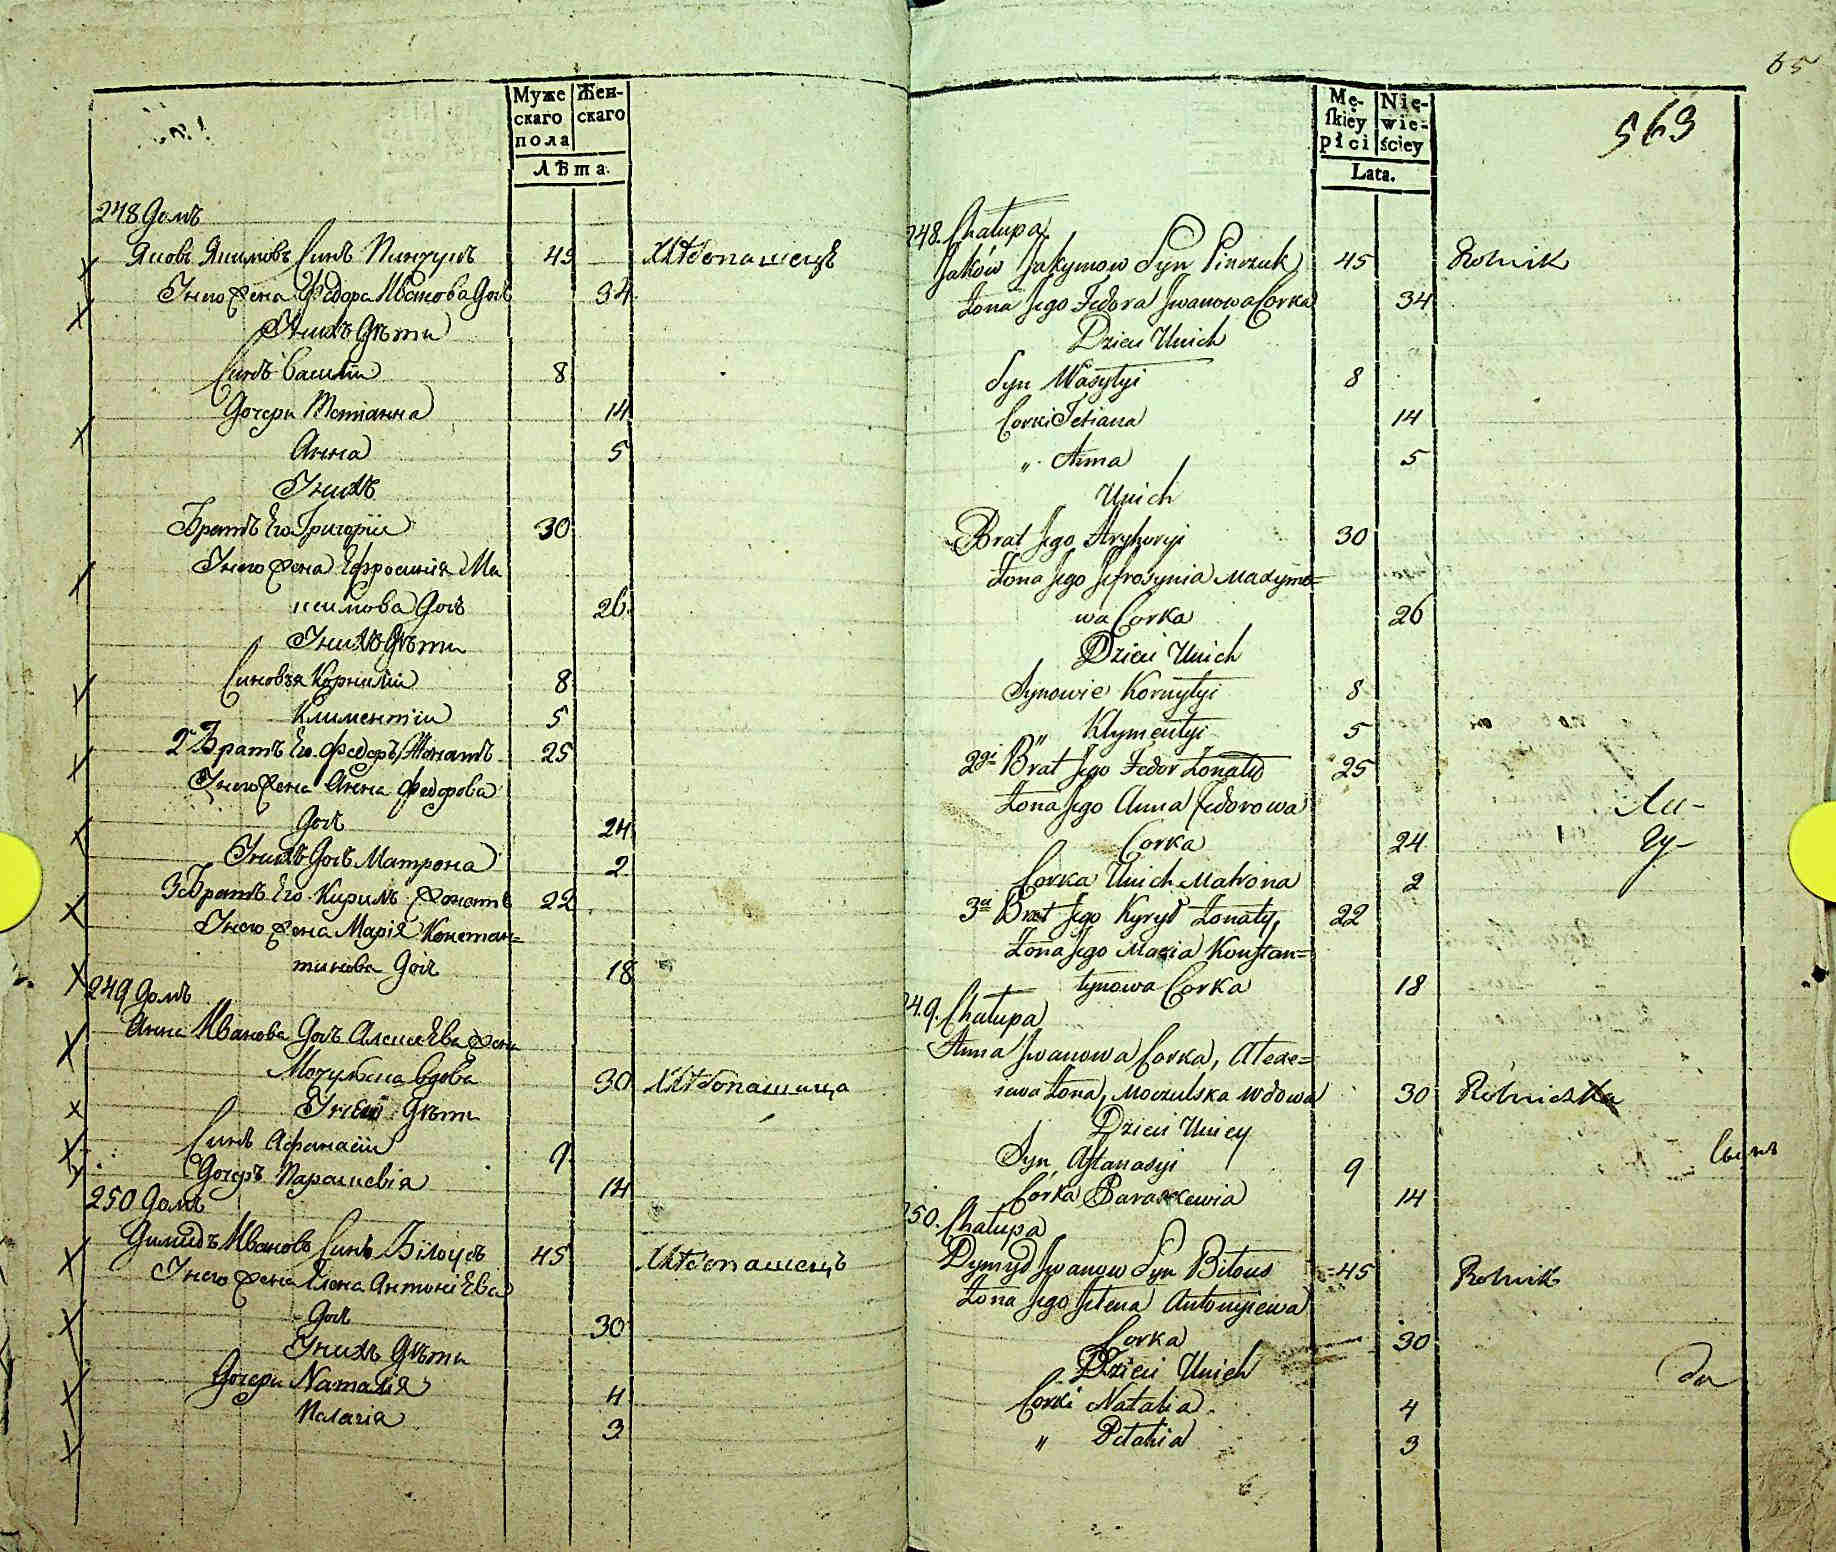 65
563
Муже
скаго
пола
Жен-
скаго
Лѣта.
248 Домъ
Яковъ Якимовъ Синъ Пинчукъ 45 Хлѣбопашецъ
Унего Жена Федора Иванова Дочь 34
Унихъ Дѣти
Синъ Василій 8
Дочери Татіанна 14
Анна 5
Унихъ
Братъ Его Григорій 30
Унего Жена Ефросинія Ма
ксимова Дочь 26
Унихъ Дѣти
Синовья Корнилій 8
Климентій 5
2й Братъ Его Федоръ Жонатъ 25
Унего Жена Анна Федорова
Дочь 24
Унихъ Дочь Матрона 2
3й Братъ Его Кирилъ Жонатъ 22
Унего Жена Марія Констан=
тинова Дочь 18
249 Домъ
Анна Иванова Дочь Алексѣева Жена
Мочульска вдова 30 Хлѣбопашица
Унеи Дѣти
Синъ Афанасій 9
Дочеръ Параскевія 14
250 Домъ
Димидъ Ивановъ Синъ Білоусъ 45 Хлѣбопашецъ
Унего Жена Елена Антоніева
Дочь 30
Унихъ Дѣти
Дочери Наталія 4
Пелагія 3
Mę-
ſkiey
płci
Nie-
wie-
ściey
Lata.
248. Chałupa
Jaków Jakymow Syn Pinczuk 45 Rolnik
Żona Jego Fedora Jwanowa Corka 34
Dzieci Unich
Syn Wasylyi 8
Corki Tetiana 14
„ Anna 5
Unich
Brat Jego Hryhoryi 30
Żona Jego Jefrosynia Maxymo=
wa Corka 26
Dzieci Unich
Synowie Kornylyi 8
„ Klymentyi 5
2gi Brat Jego Fedor Żonaty 25
Żona Jego Anna Fedorowa
Corka 24
Corka Unich Matrona 2
3ci Brat Jego Kyrył Żonaty 22
Żona Jego Maria Konstan=
tynowa Corka 18
249. Chałupa
Anna Jwanowa Corka, Alexe=
iewa Żona, Moczulska wdowa 30 Rolniczka
Dzieci Uniey
Syn Aftanasyi 9
Corka Paraskewia 14
250. Chałupa
Dymyd Jwanow Syn Biłous 45 Rolnik
Żona Jego Jelena Antonyiewa
Corka 30
Dzieci Unich
Corki Natalia 4
„ Pelahia 3